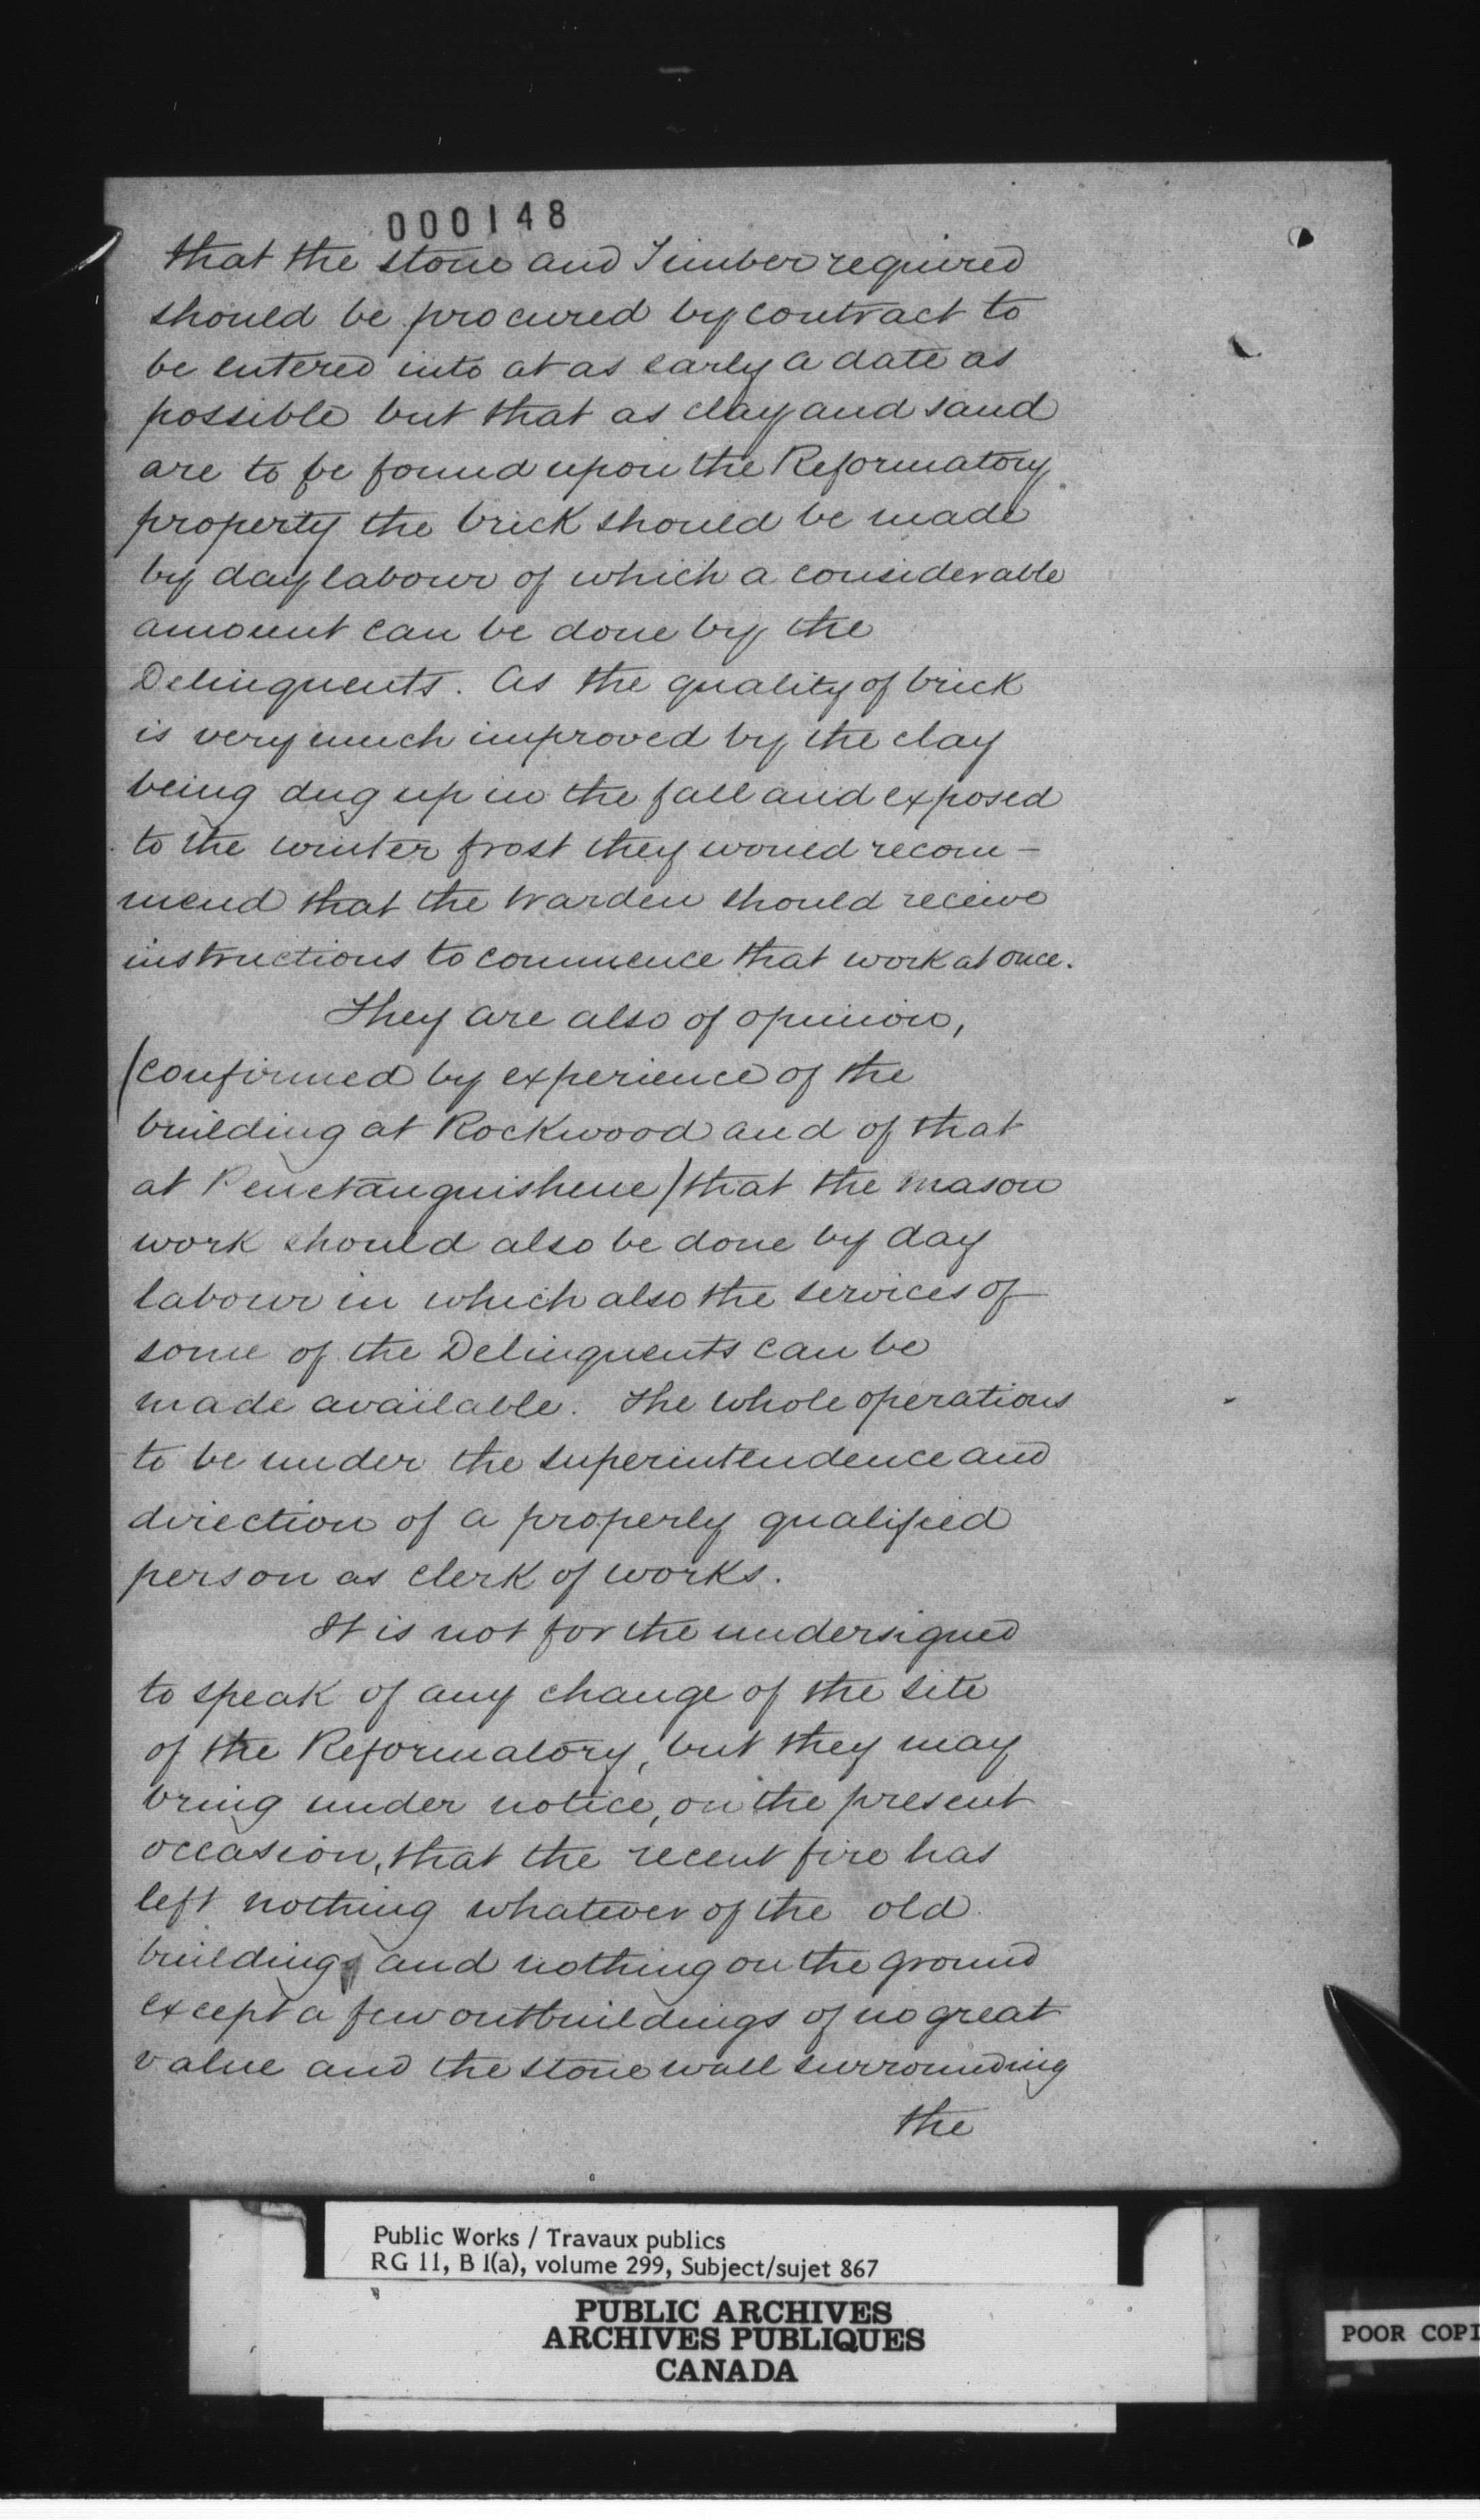 000148
that the stone and Timber required
should be procured by contract to
be entered into at as early a date as
possible but that as clay and sand
are to be found upon the Reformatory
property the brick should be made
by day labour of which a considerable
amount can be done by the
Delinquents. As the quality of brick
is very much improved by the clay
being dug up in the fall and exposed
to the winter frost they would recom-
mend that the Warden should receive
instructions to commence that work at once.
They are also of opinion,
(confirmed by experience of the
building at Rockwood and of that
at Penetanguishene) that the mason
work should also be done by day
labour in which also the services of
some of the Delinquents can be
made available. The whole operations
to be under the superintendence and
direction of a properly qualified
person as clerk of works.
It is not for the undersigned
to speak of any change of the site
of the Reformatory, but they may
bring under notice, on the present
occasion, that the recent fire has
left nothing whatever of the old
buildings and nothing on the ground
except a few outbuildings of no great
value and the stone wall surrounding
the
Public Works / Travaux publics
RG 11, B 1(a), volume 299, Subject/sujet 867
PUBLIC ARCHIVES
ARCHIVES PUBLIQUES
CANADA
POOR COPI